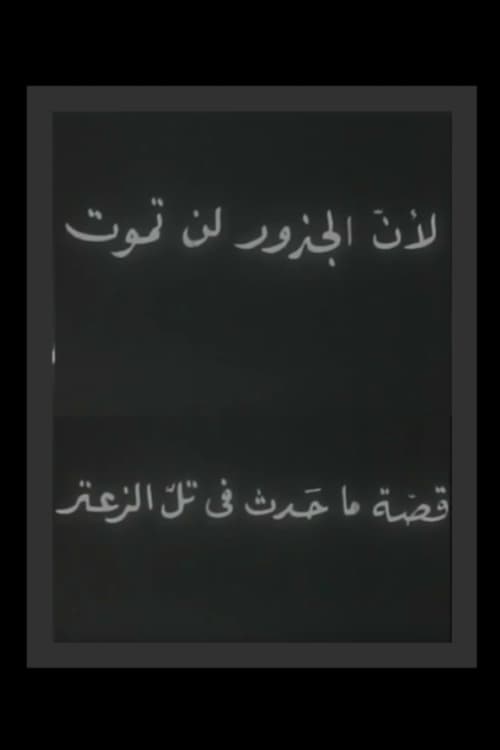 لأنّ الجذور لن تموت
قصّة ما حَدث في تلّ الزعتر